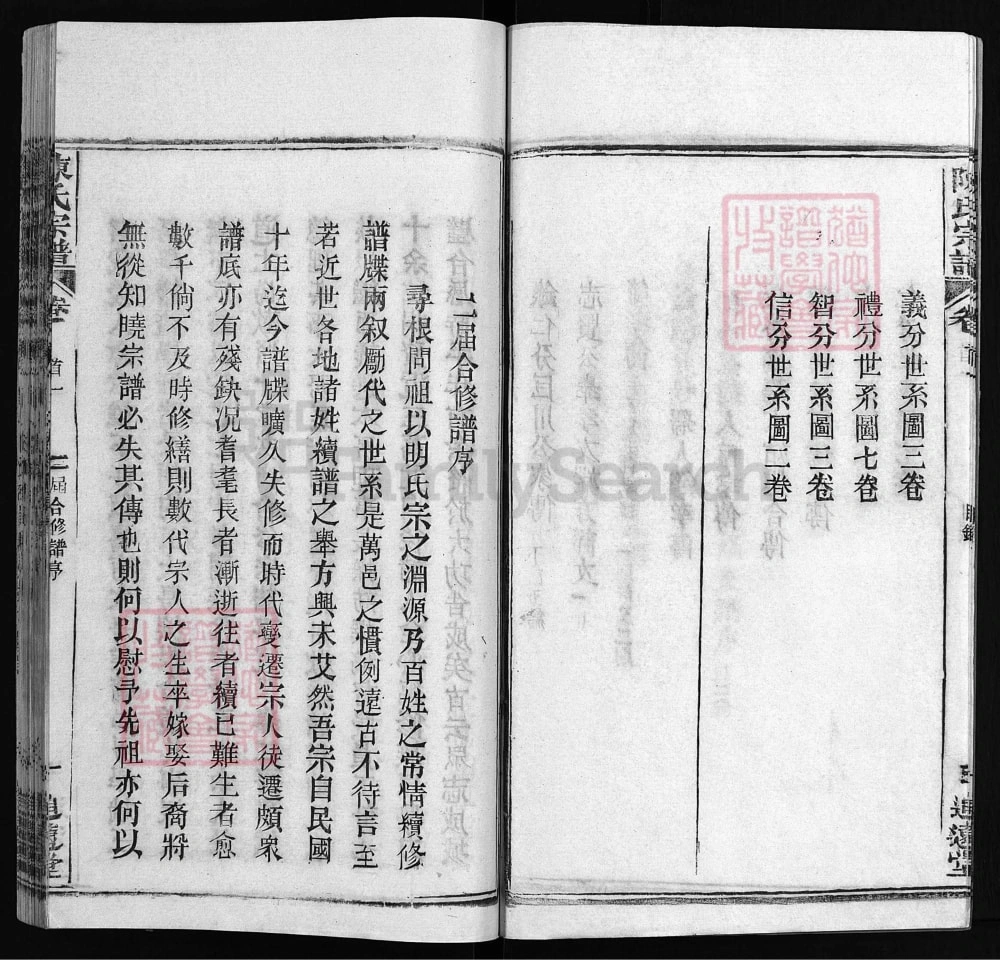 陳氏宗譜
義分世系圖三卷
禮分世系圖七卷
智分世系圖三卷
信分世系圖二卷
通遠堂
FamilySearch
二届合修譜序
尋根問祖以明氏宗之淵源乃百姓之常情續修
譜牒兩叙勵代之世系是萬邑之慣例遠古不待言至
若近世各地諸姓續譜之舉方興未艾然吾宗自民國
十年迄今譜牒曠久失修而時代變遷宗人徒遷頗衆
譜底亦有殘缺况耆耄長者漸逝往者續已難生者愈
數千倘不及時修繕則數代宗人之生卒嫁娶后裔將
無從知曉宗譜必失其傳也則何以慰予先祖亦何以
陳氏宗譜
卷首一
二届合修譜序
一